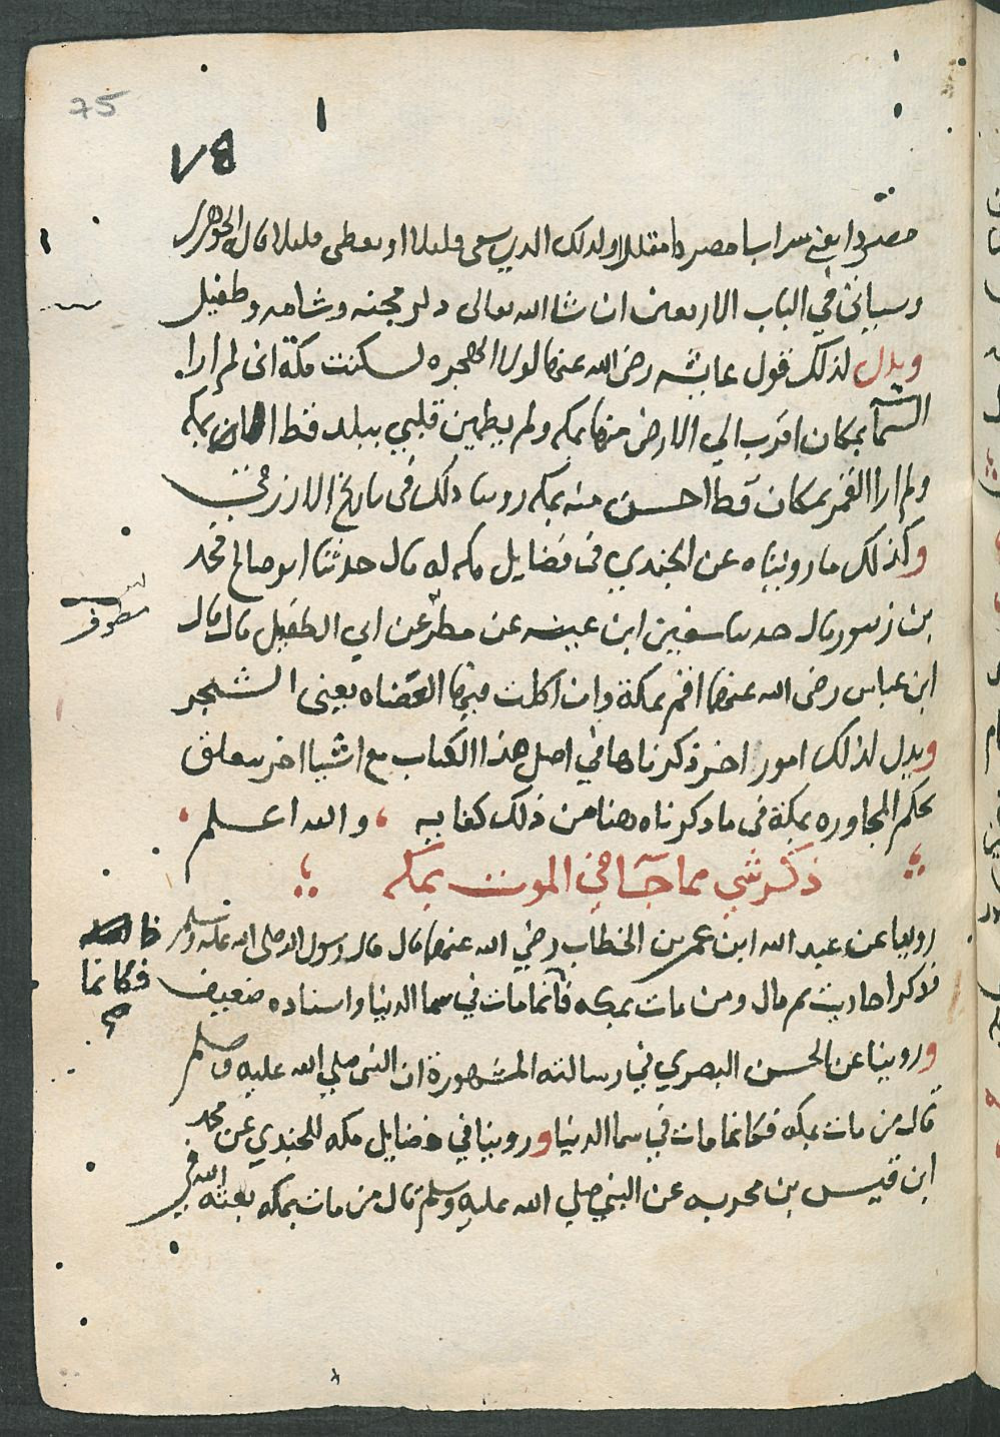 75
٧٤
مصردا يعني سرابا مصردا مقللا ولذلك الذي يسقى قليلا او يعطى قليلا قاله الجوهري
وسياتي في الباب الاربعين ان شا الله تعالى ذكر مجنه وشامه وطفيل
ويدل لذلك قول عايشه رضي الله عنها لولا الهجره لسكنت مكة انى لم ارا
السما بمكان اقرب الي الارض منها بمكه ولم يطمين قلبي ببلد قط اطمان بمكه
ولم ارا القمر بمكان قط احسن منه بمكه روينا ذلك في تاريخ الازرقي
وكذلك ما رويناه عن الجندي في فضايل مكه له قال حدثنا ابو صالح محمد
بن زنبور قال حدثنا سفين ابن عيينه عن مطرف عن ابي الطفيل قال قال
مطرف
ابن عباس رضي الله عنهما اقم بمكة وان اكلت فيها العضاه يعنى الشجر
ويدل لذلك امور اخر ذكرناها في اصل هذا الكتاب مع اشيا اخر تتعلق
بحكم المجاوره بمكة في ما ذكرناه هنا من ذلك كفايه والله اعلم
ذكر شي مما جآ في الموت بمكه
روينا عن عبد الله ابن عمر بن الخطاب رضي الله عنهما قال قال رسول الله صلى الله عليه وسلم
فذكر احاديث ثم قال ومن مات بمكه فكانما مات في سما الدنيا واسناده ضعيف
فكانما
وروينا عن الحسن البصري في رسالته المشهورة ان النبي صلي الله عليه وسلم
قال من مات بمكه فكانما مات في سما الدنيا وروينا في فضايل مكه للجندي عن محمد
ابن قيس بن مخرمه عن النبي صلي الله عليه وسلم قال من مات بمكه بعثه الله في